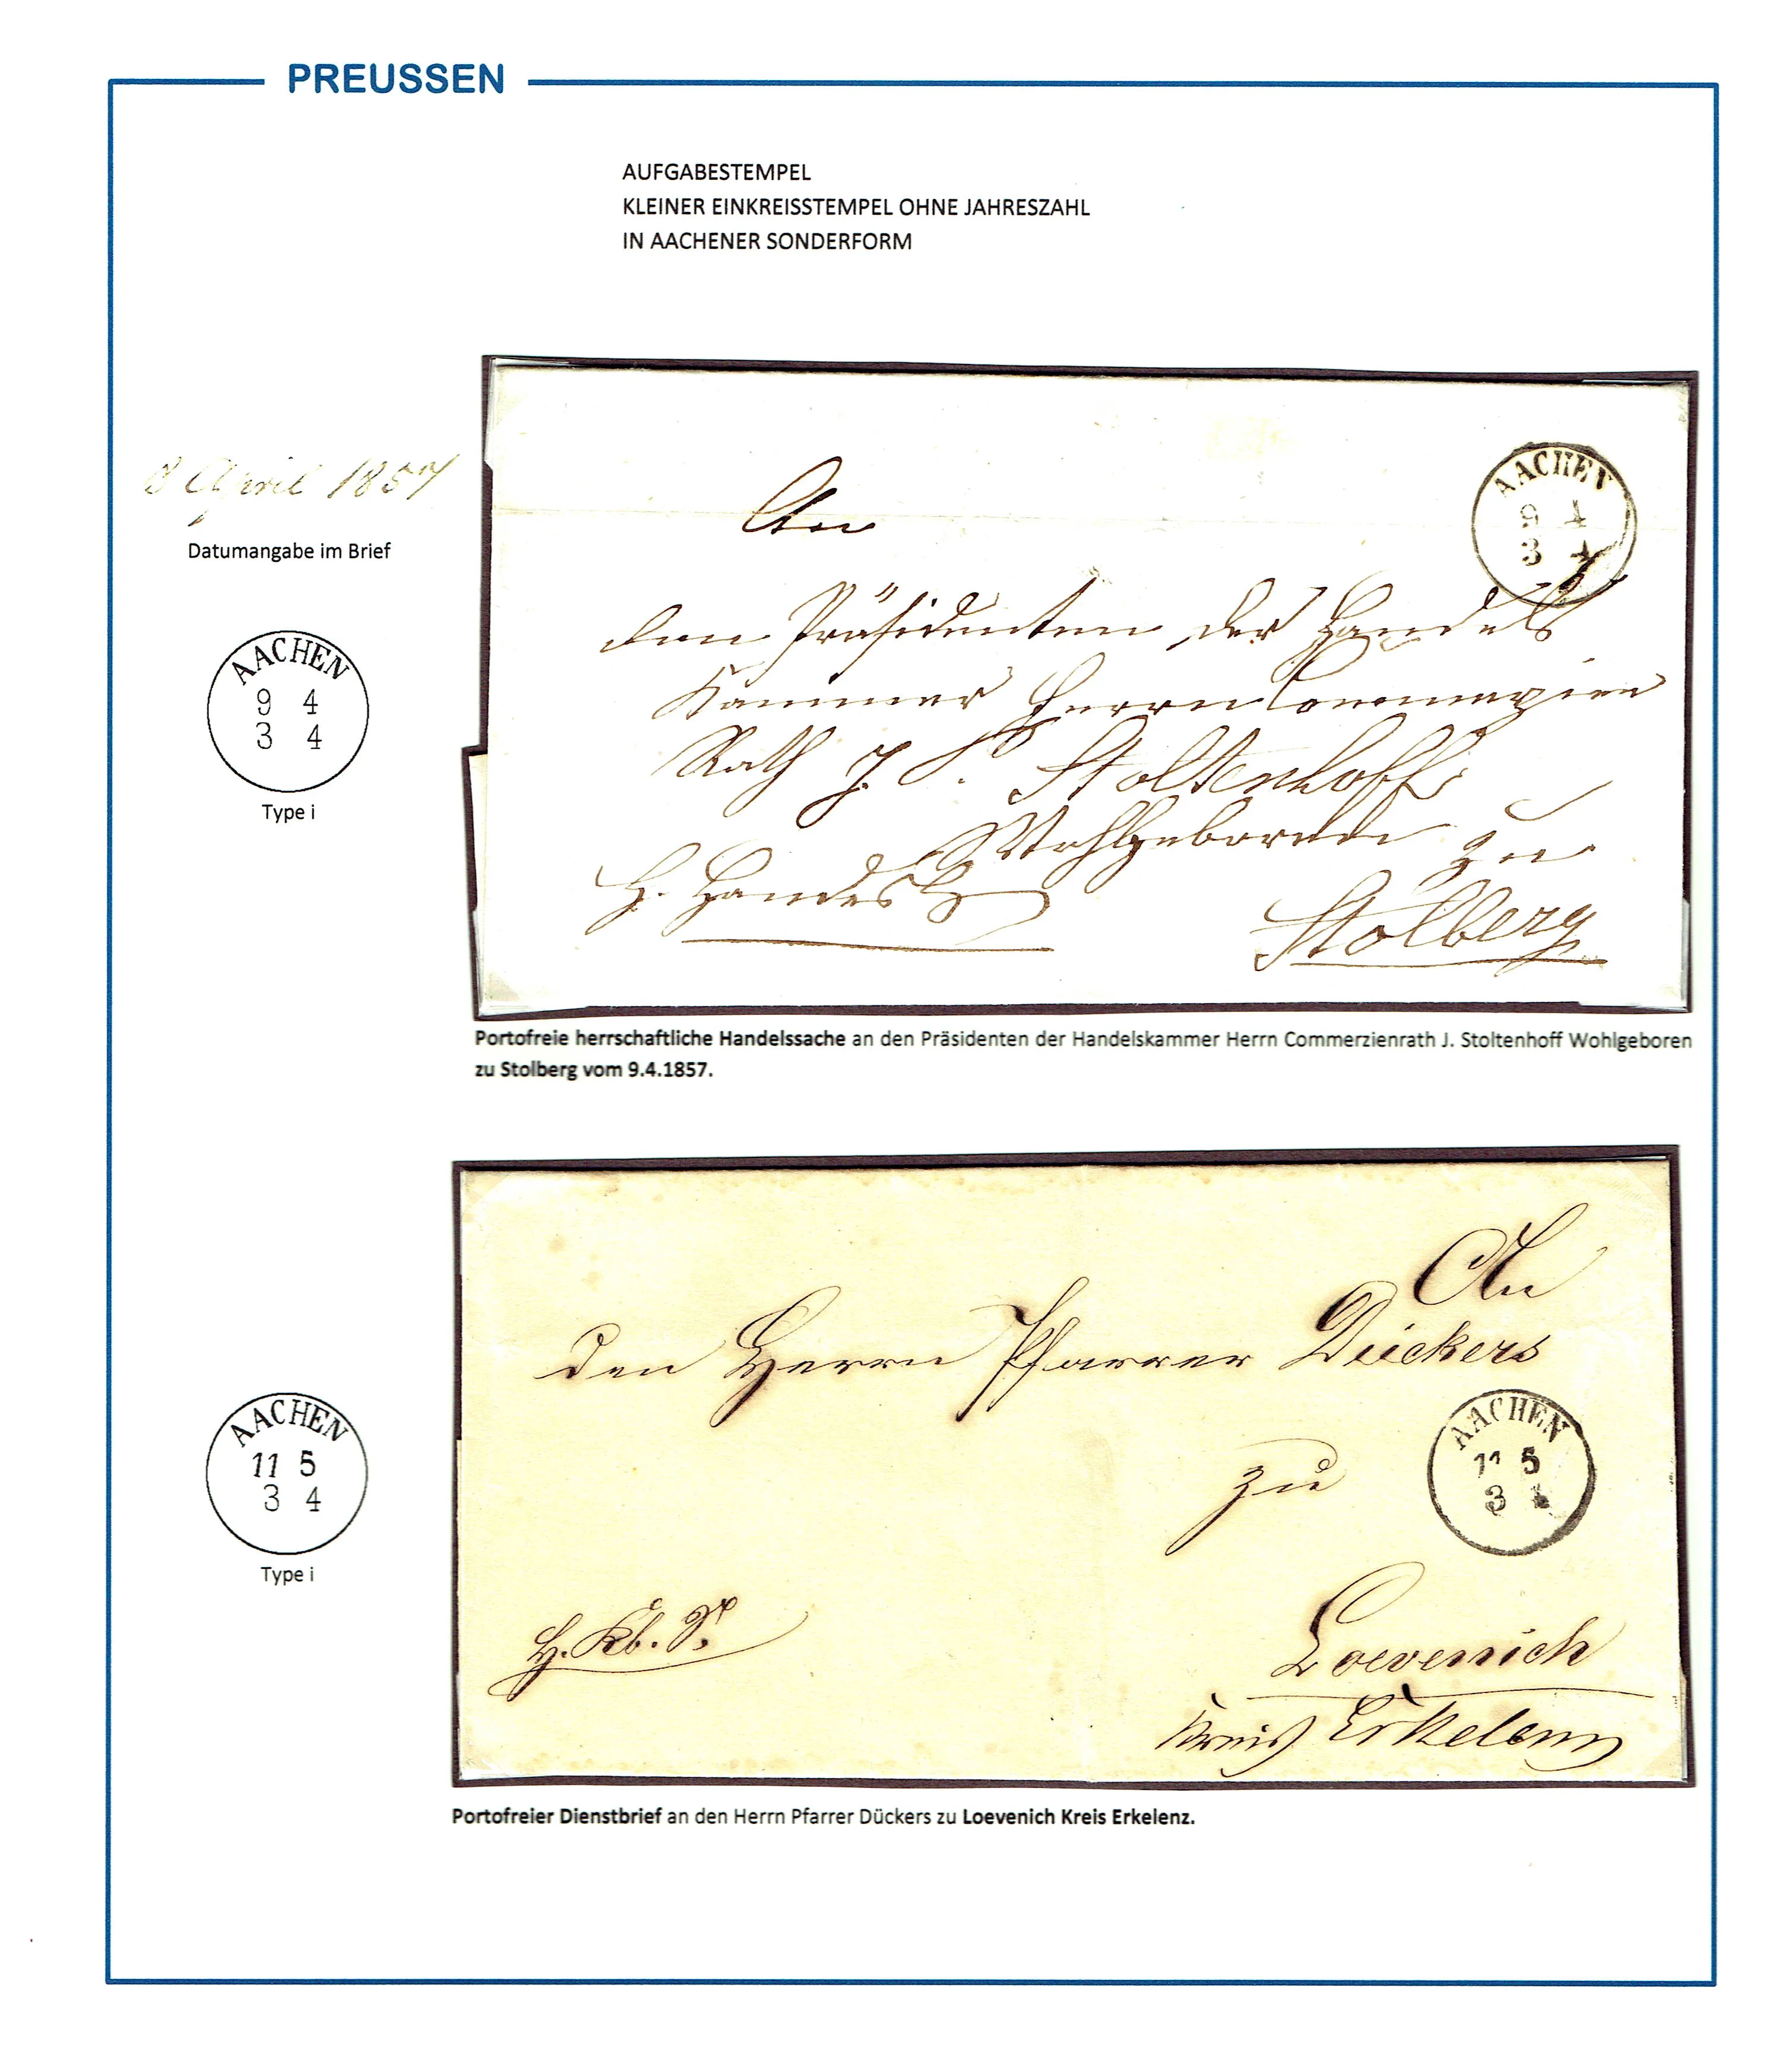 PREUSSEN
AUFGABESTEMPEL
KLEINER EINKREISSTEMPEL OHNE JAHRESZAHL
IN AACHENER SONDERFORM
8 April 1857
Datumangabe im Brief
AACHEN
9 4
3 4
Type i
AACHEN
9 4
3 4
An
den Präsidenten der Handels
Kammer Herrn Commerzien
Rath J. Stoltenhoff
Wohlgeboren zu
H. Handels
Stolberg
Portofreie herrschaftliche Handelssache an den Präsidenten der Handelskammer Herrn Commerzienrath J. Stoltenhoff Wohlgeboren
zu Stolberg vom 9.4.1857.
An
den Herrn Pfarrer Dückers
AACHEN
11 5
3 4
zu
H. Kb. S.
Loevenich
Kreis Erkelenz
AACHEN
11 5
3 4
Type i
Portofreier Dienstbrief an den Herrn Pfarrer Dückers zu Loevenich Kreis Erkelenz.